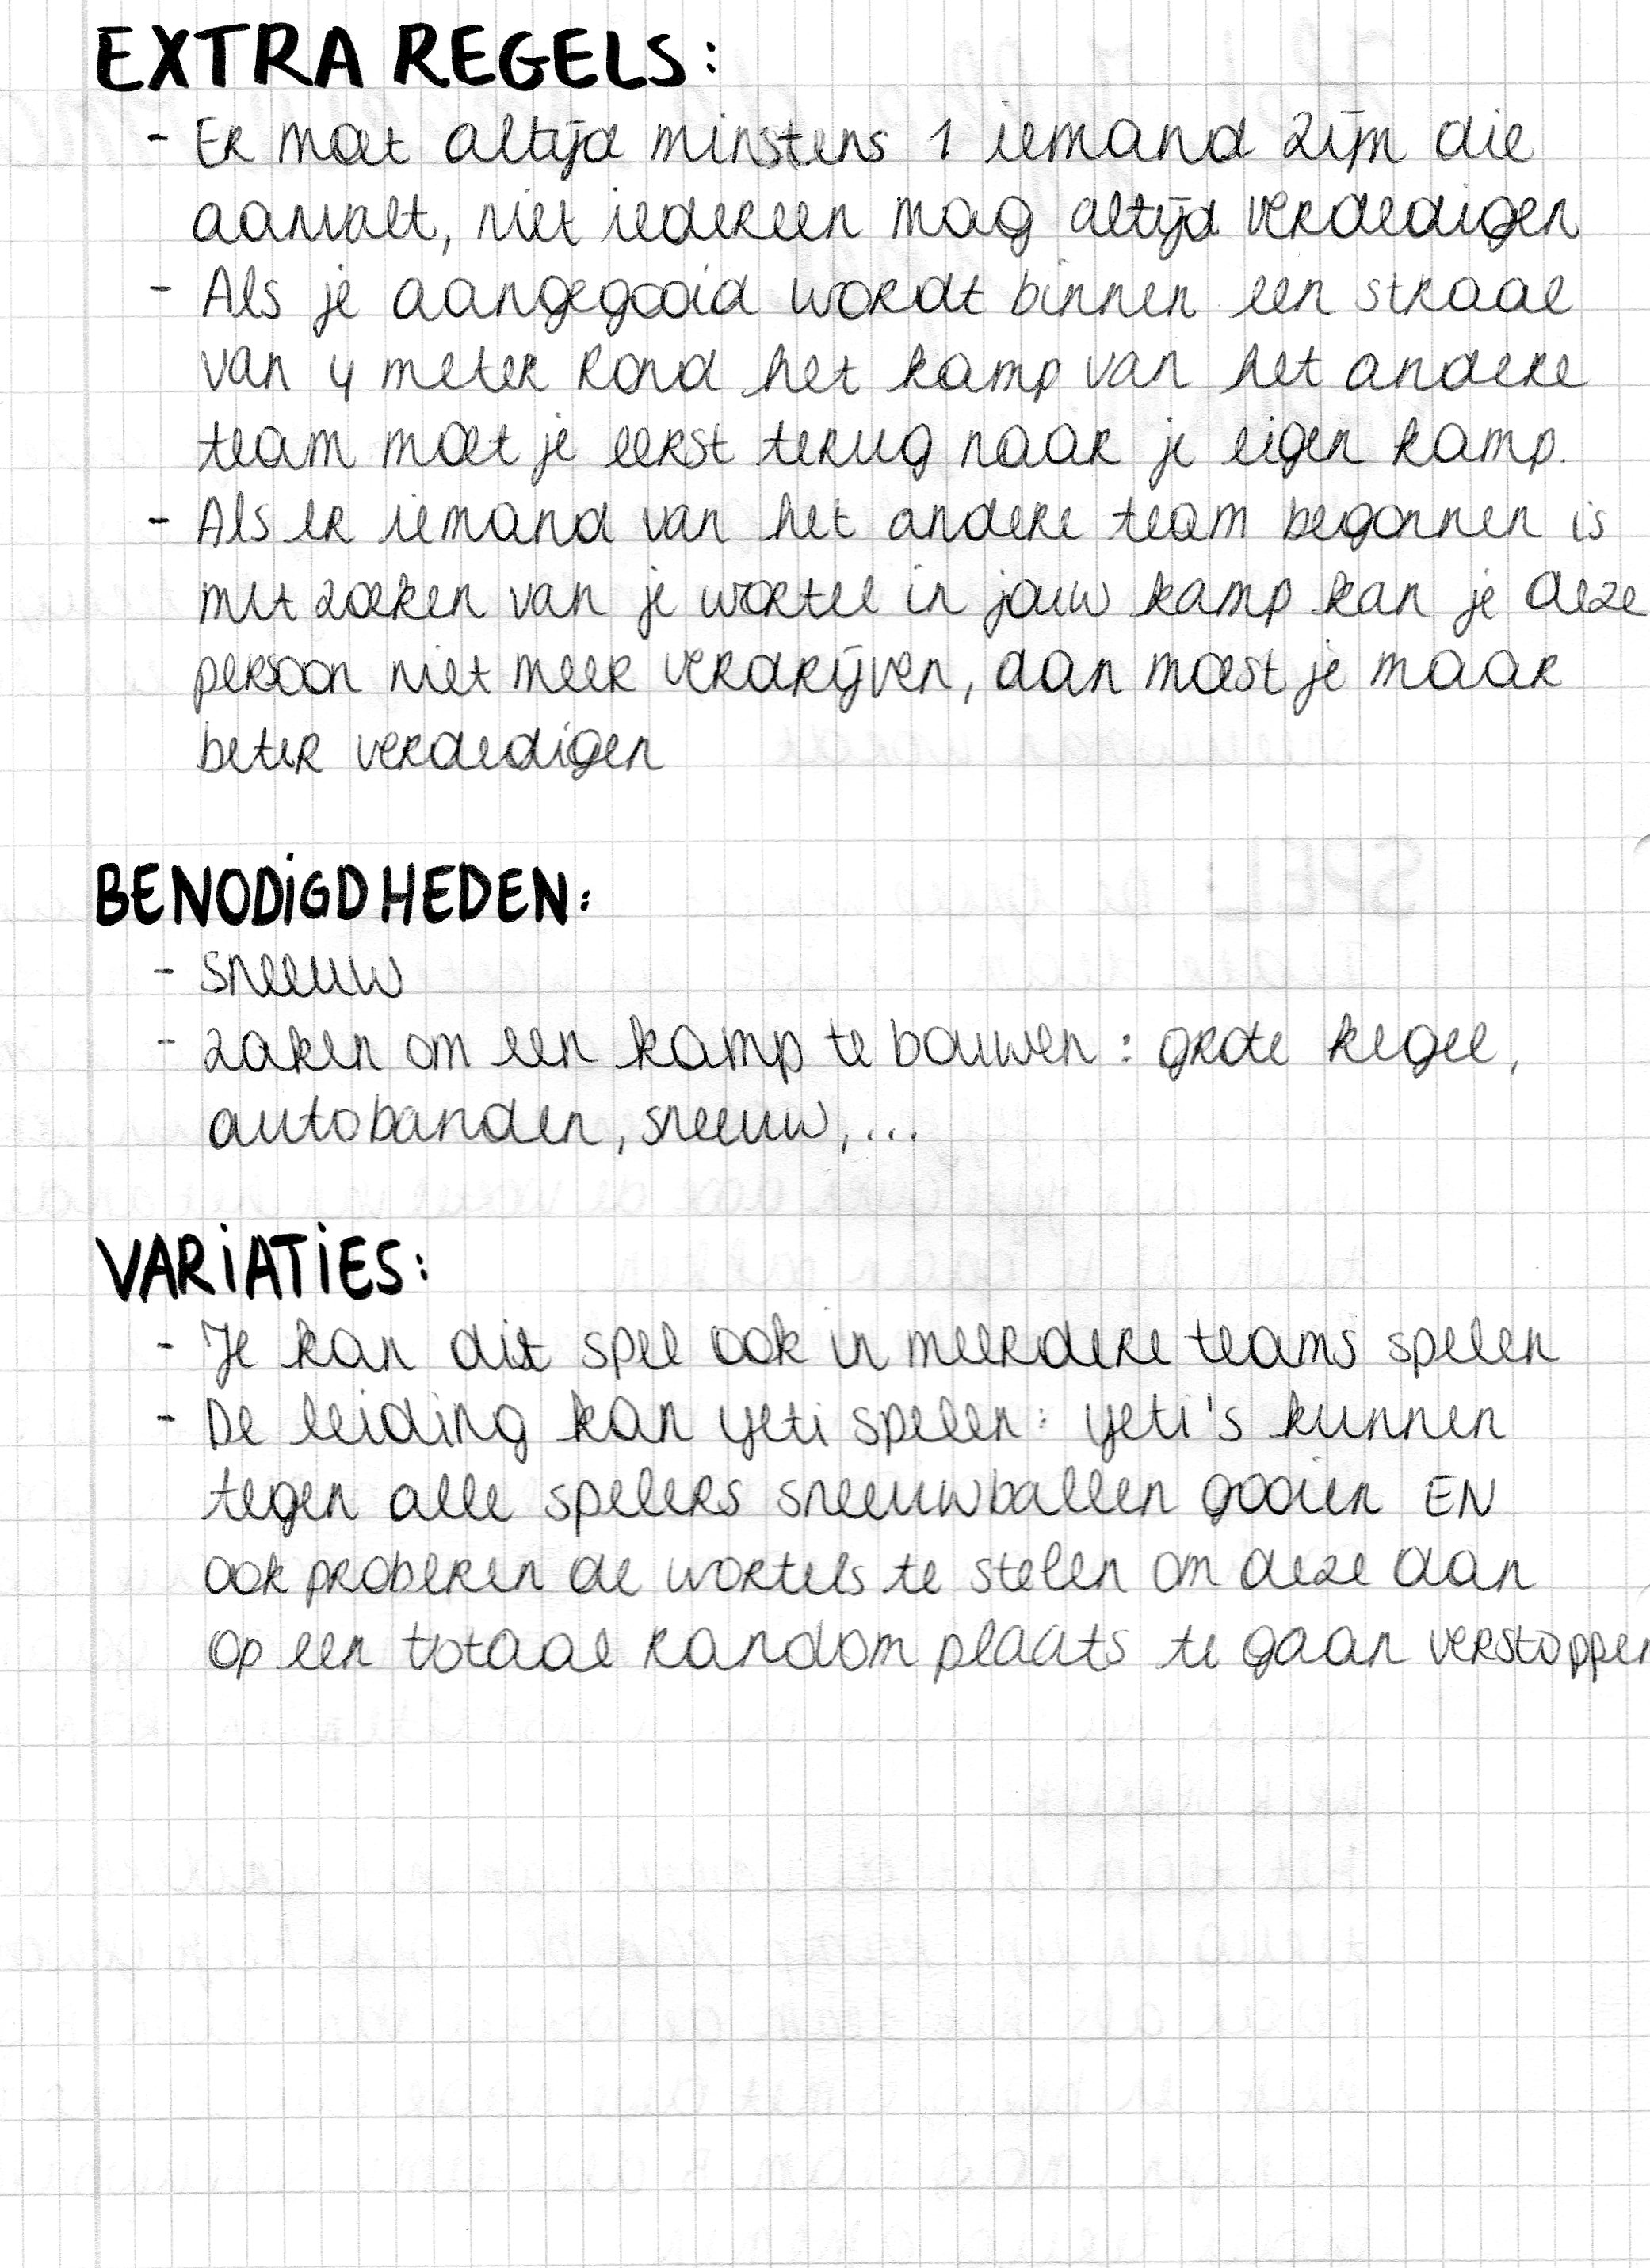 EXTRA REGELS:
- Er moet altijd minstens 1 iemand zijn die
aanvalt, niet iedereen mag altijd verdedigen
- Als je aangegooid wordt binnen een straal
van 4 meter rond het kamp van het andere
team moet je eerst terug naar je eigen kamp.
- Als er iemand van het andere team begonnen is
met zoeken van je wortel in jouw kamp kan je deze
persoon niet meer verdrijven, dan moest je maar
beter verdedigen
BENODIGDHEDEN:
- sneeuw
- zaken om een kamp te bouwen: grote kegel,
autobanden, sneeuw, ...
VARIATIES:
- Je kan dit spel ook in meerdere teams spelen
- De leiding kan yeti spelen: yeti's kunnen
tegen alle spelers sneeuwballen gooien EN
ook proberen de wortels te stelen om deze dan
op een totaal random plaats te gaan verstoppen